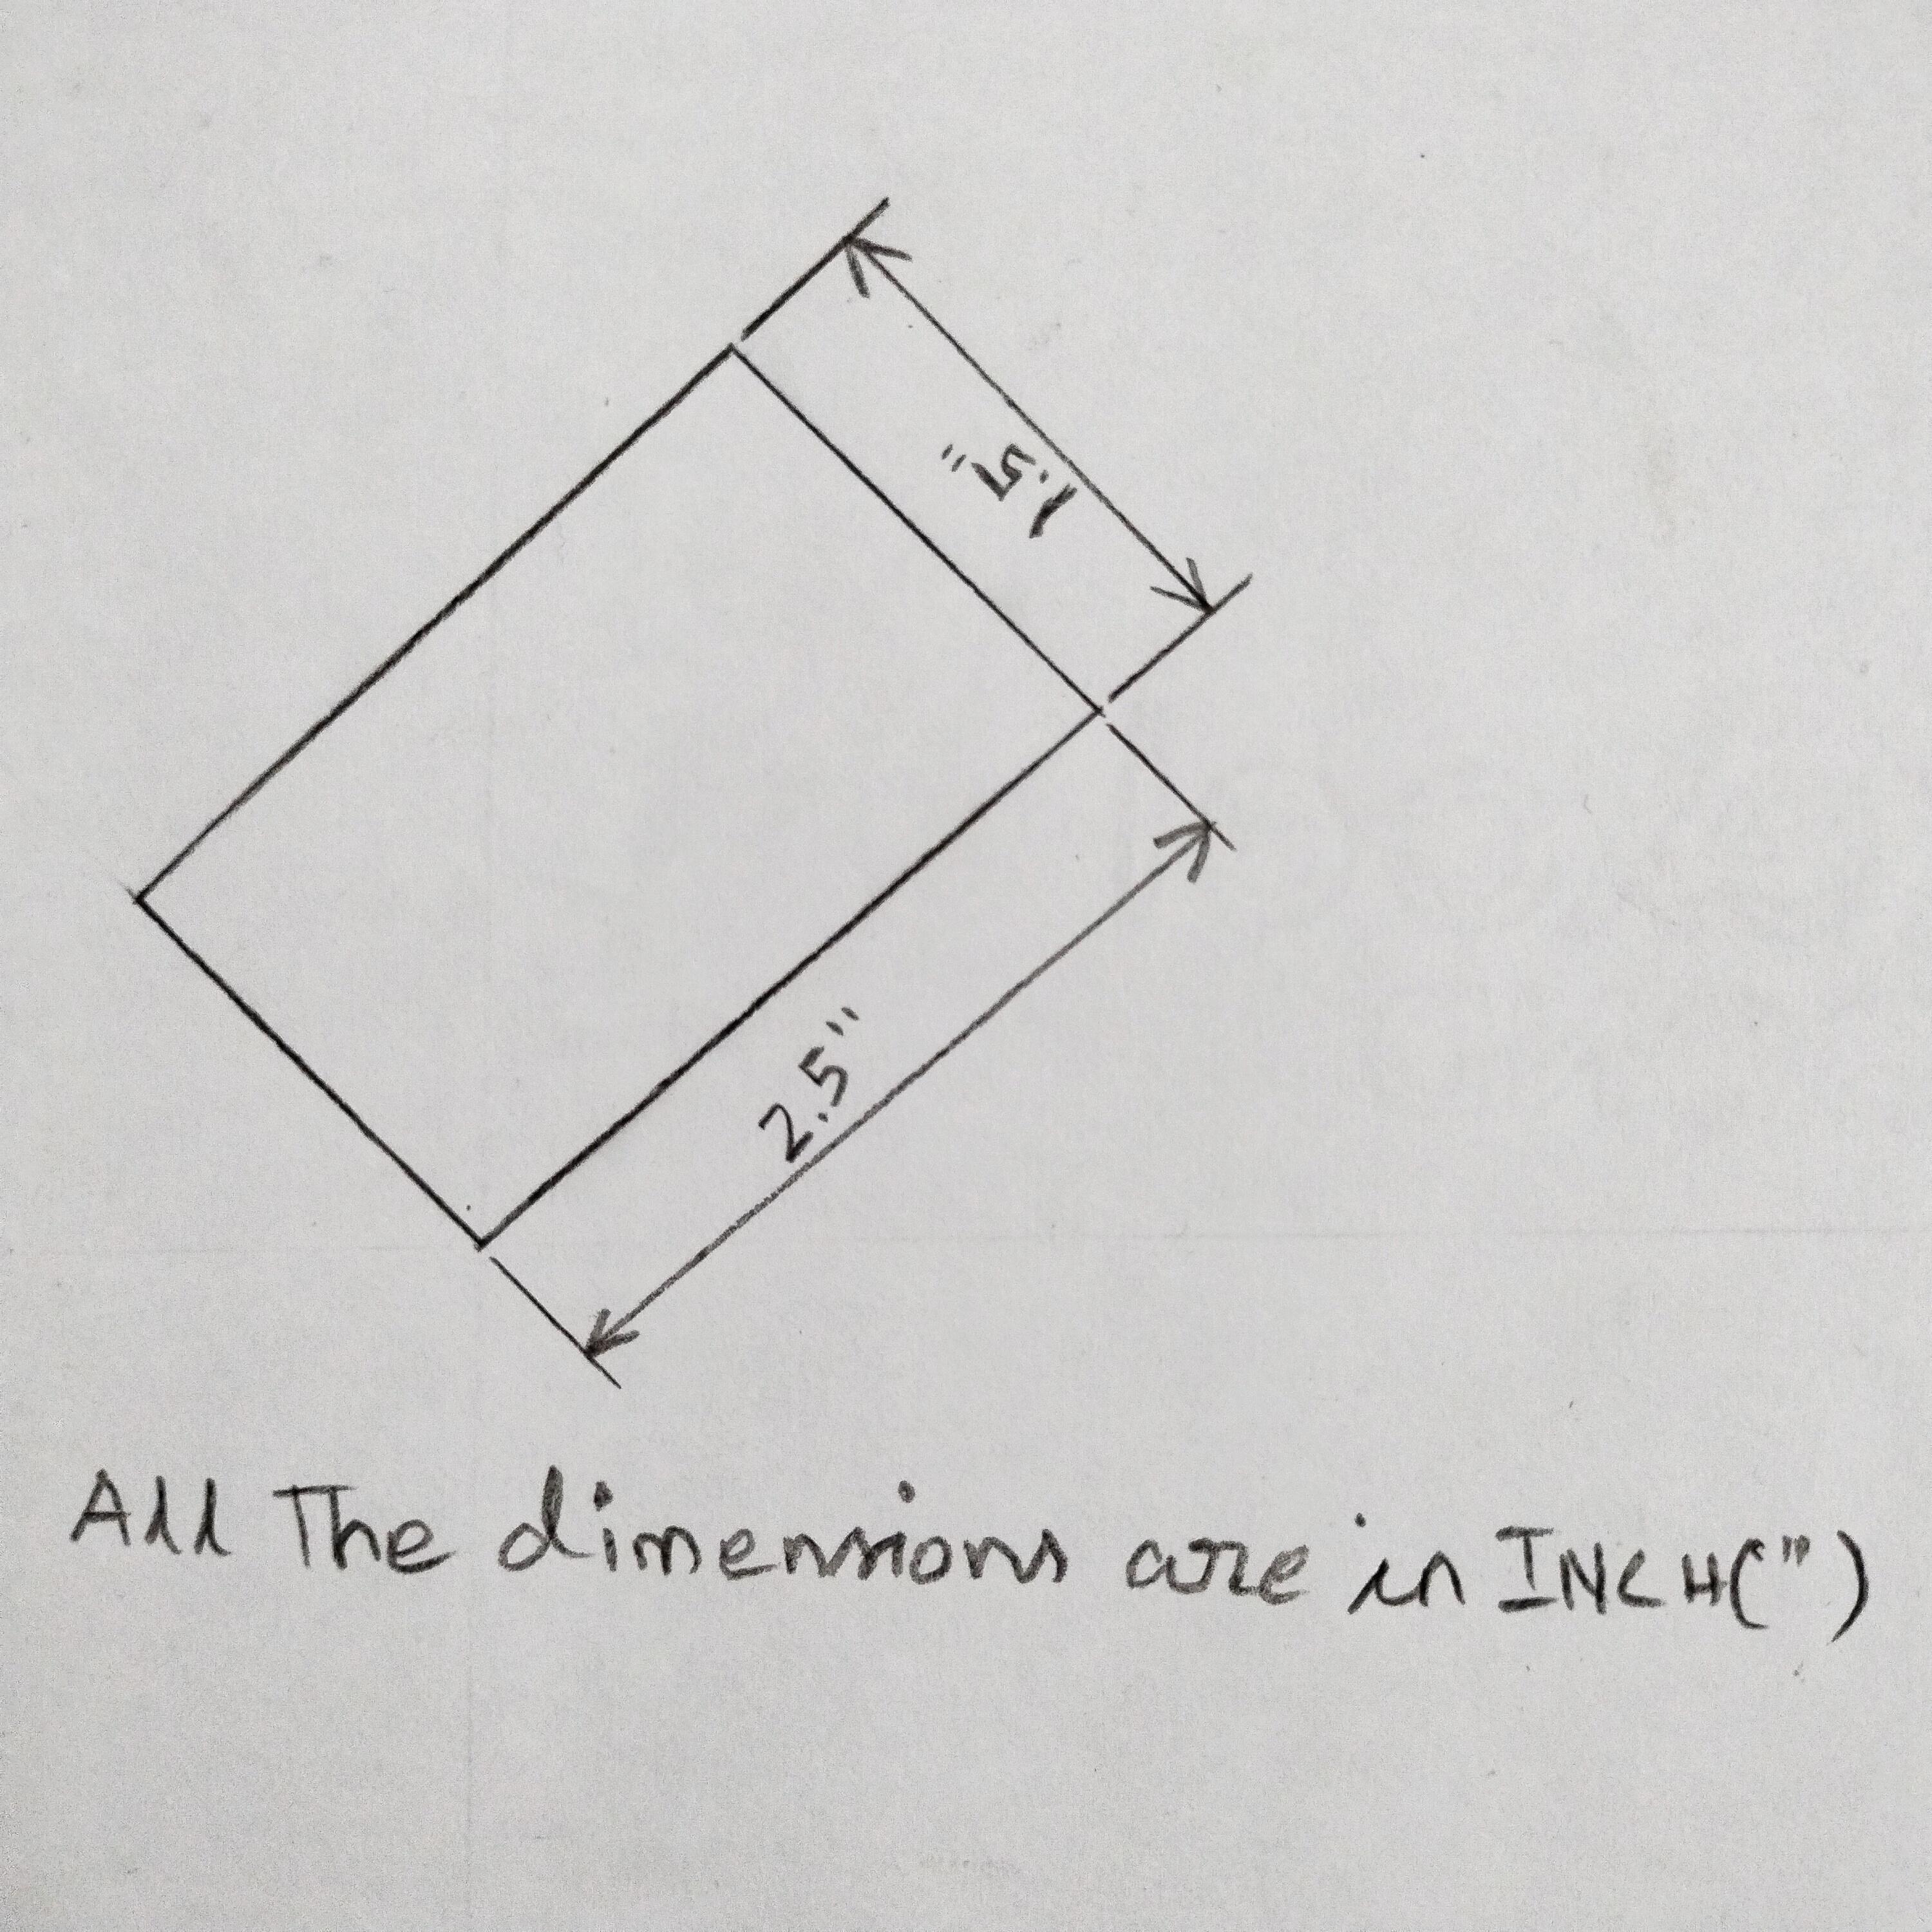 1.5"
2.5"
All The dimensions are in INCH(")